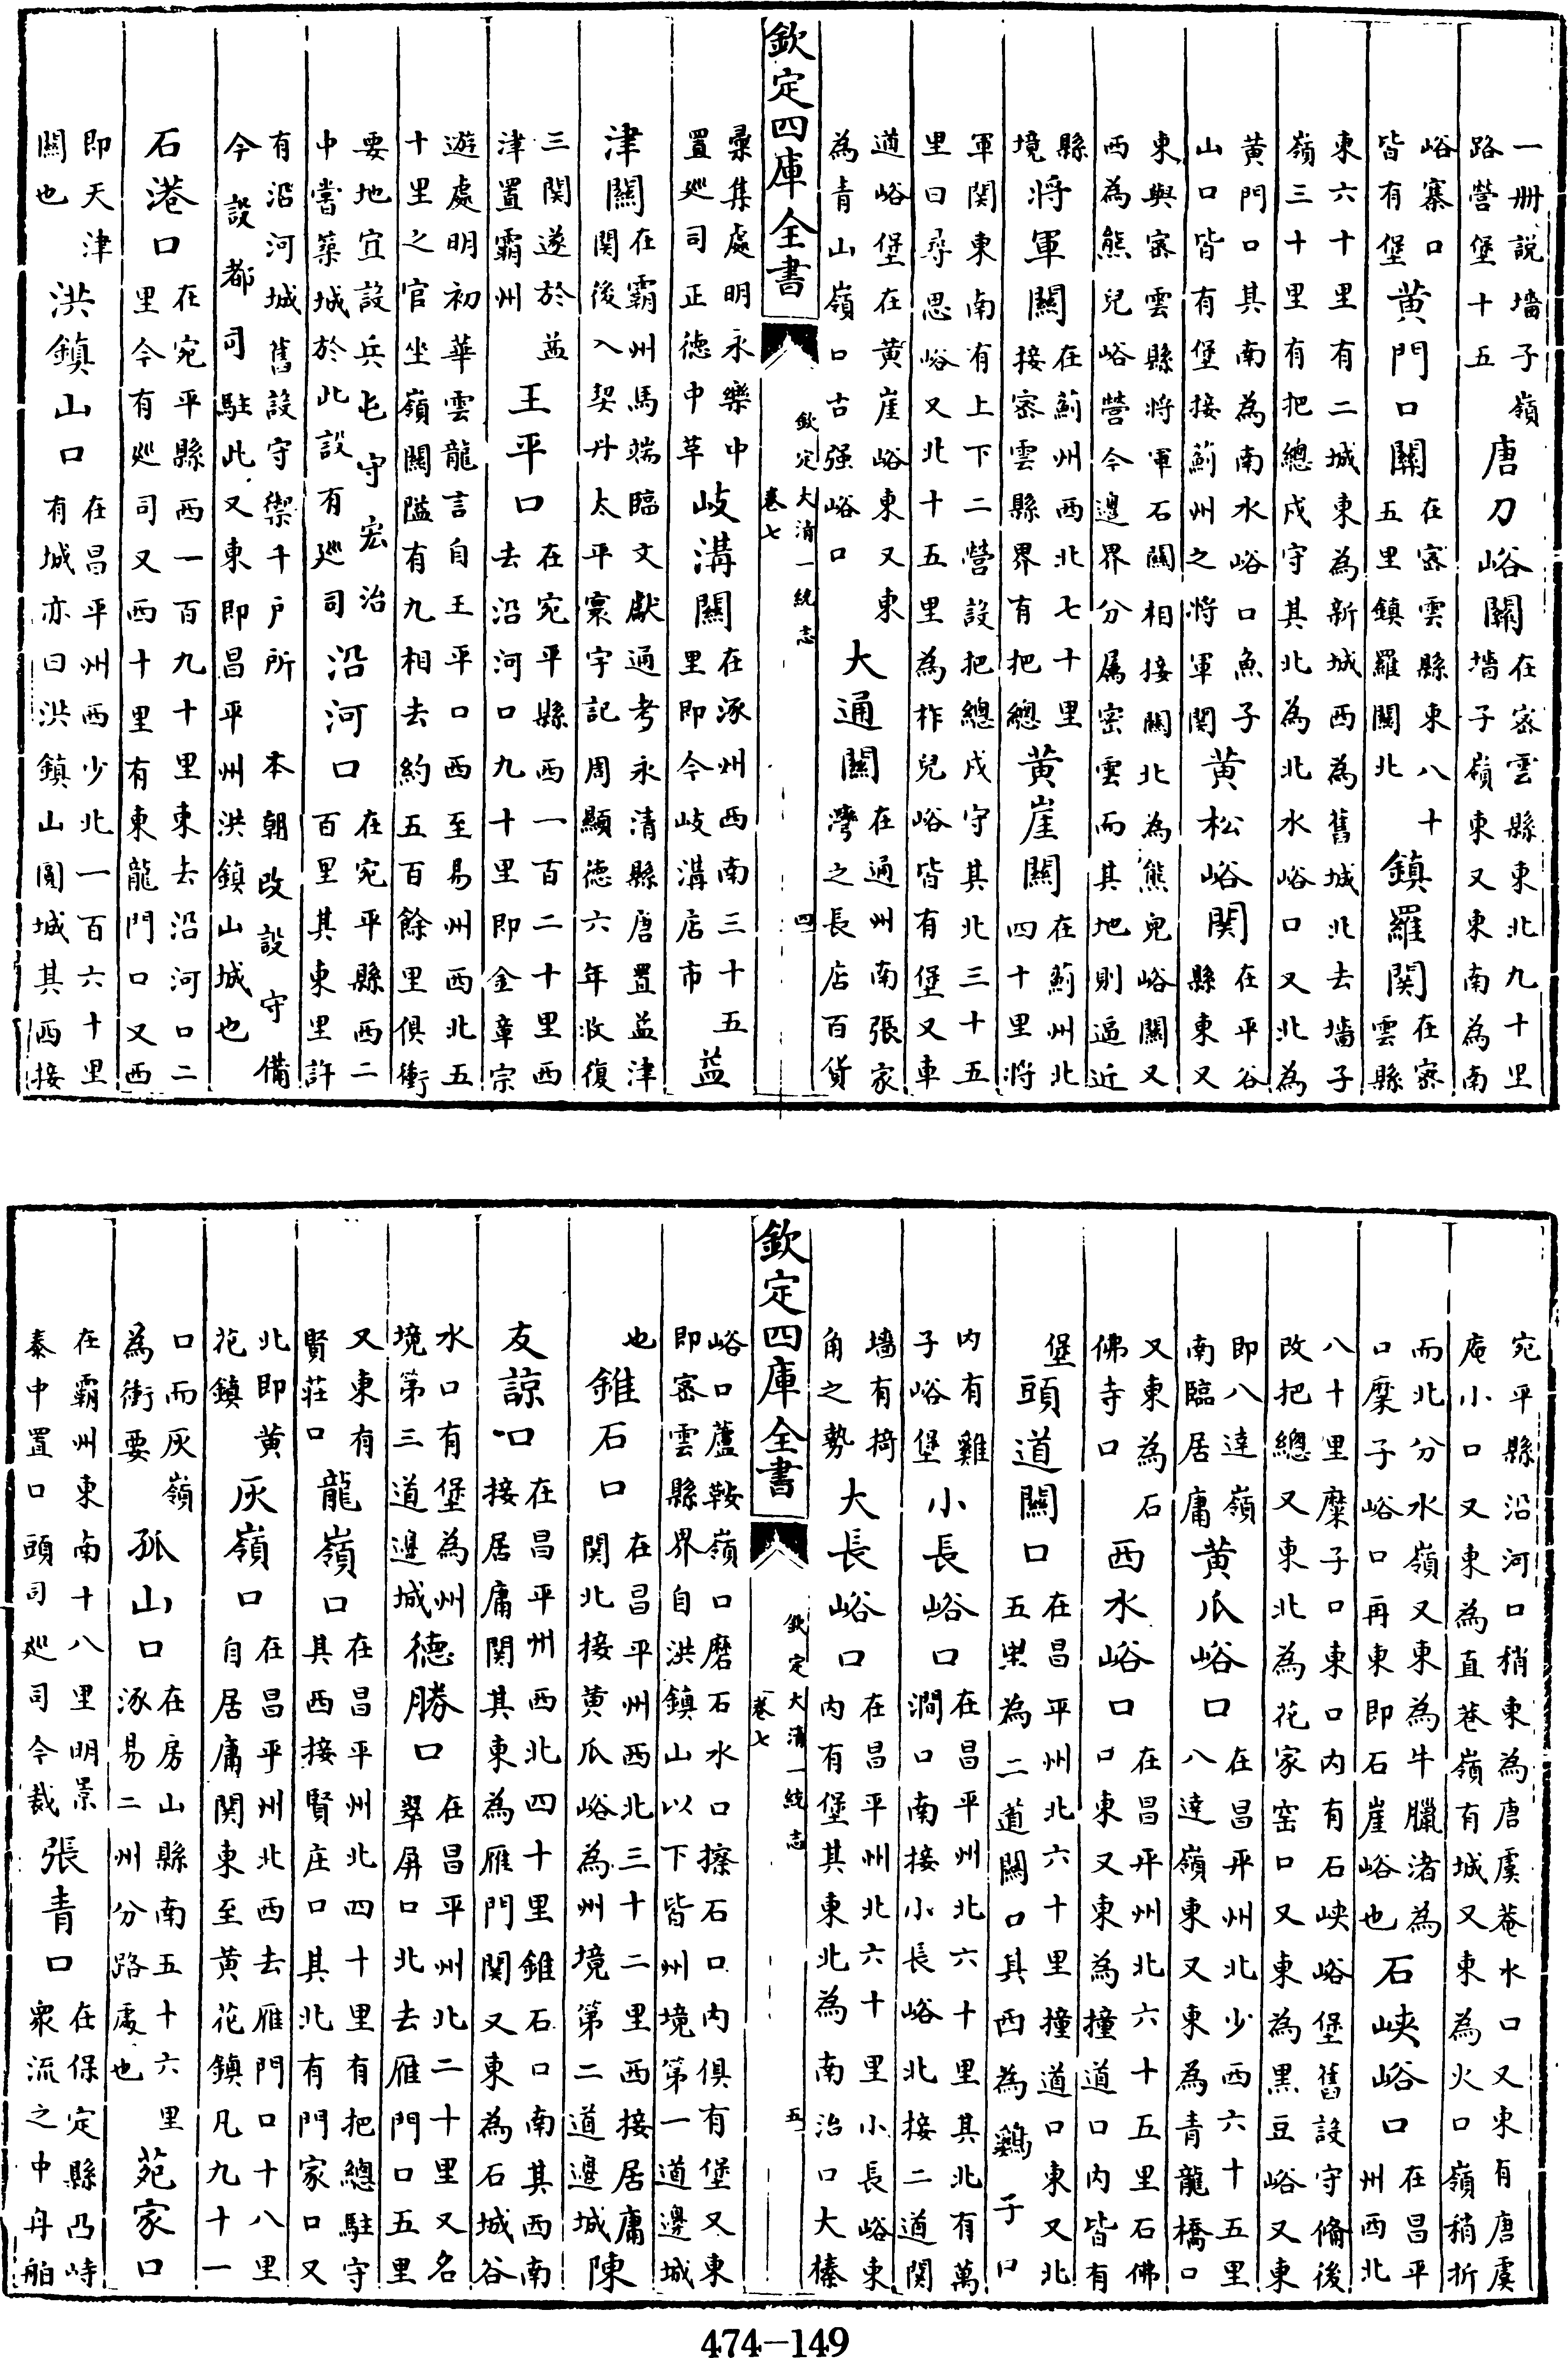 一册説墻子嶺
路營堡十五
唐刀峪關
在宻雲縣東北九十里
墻子嶺東又東南為南
峪寨口
皆有堡
黄門口關
在宻雲縣東八十
五里鎮羅關北
鎮羅関
在宻
雲縣
東六十里有二城東為新城西為舊城北去墻子
嶺三十里有把總戍守其北為北水峪口又北為
黄門口其南為南水峪口魚子
山口皆有堡接薊州之將軍関
黄松峪関
在平谷
縣東又
東與宻雲縣將軍石關相接關北為熊兒峪關又
西為熊兒峪營今邊界分属宻雲而其地則逼近
縣
境
將軍關
在薊州西北七十里
接宻雲縣界有把總
黄崖關
在薊州北
四十里將
軍関東南有上下二營設把總戍守其北三十五
里曰尋思峪又北十五里為柞兒峪皆有堡又車
道峪堡在黄崖峪東又東
為青山嶺口古强峪口
大通關
在通州南張家
灣之長店百貨
欽定四庫全書
欽定大清一統志
卷七
四
彚集處明永樂中
置廵司正德中草
岐溝關
在涿州西南三十五
里即今岐溝店市
益
津關
在霸州馬端臨文獻通考永清縣唐置益津
関後入契丹太平寰宇記周顯德六年收復
三関遂於益
津置霸州
王平口
在宛平縣西一百二十里西
去沿河口九十里即金章宗
遊處明初華雲龍言自王平口西至易州西北五
十里之官坐嶺關隘有九相去約五百餘里俱衝
要地宜設兵屯守宏治
中嘗築城於此設有廵司
沿河口
在宛平縣西二
百里其東里許
有沿河城舊設守禦千户所本朝改設守備
今設都司駐此又東即昌平州洪鎮山城也
石港口
在宛平縣西一百九十里東去沿河口二
里今有廵司又西十里有東龍門口又西
即天津
關也
洪鎮山口
在昌平州西少北一百六十里
有城亦曰洪鎮山圓城其西接
宛平縣沿河口稍東為唐虞菴水口又東有唐虞
庵小口又東為直巷嶺有城又東為火口嶺稍折
而北分水嶺又東為牛臘渚為
口糜子峪口再東即石崖峪也
石峽峪口
在昌平
州西北
八十里糜子口東口内有石峽峪堡舊設守俻後
改把總又東北為花家窑口又東為黒豆峪又東
即八逹嶺
南臨居庸
黄爪峪口
在昌平州北少西六十五里
八達嶺東又東為青龍橋口
又東為石
佛寺口
西水峪口
在昌平州北六十五里石佛
口東又東為撞道口内皆有
堡
頭道關口
在昌平州北六十里撞道口東又北
五里為二道關口其西為鷄子口
内有雞
子峪堡
小長峪口
在昌平州北六十里其北有萬
澗口南接小長峪北接二道関
墻有掎
角之勢
大長峪口
在昌平州北六十里小長峪東
内有堡其東北為南冶口大榛
欽定四庫全書
欽定大清一統志
卷七
五
峪口蘆鞍嶺口磨石水口擦石口内俱有堡又東
即宻雲縣界自洪鎮山以下皆州境第一道邊城
也
錐石口
在昌平州西北三十二里西接居庸
関北接黄瓜峪為州境第二道邊城
陳
友諒口
在昌平州西北四十里錐石口南其西南
接居庸関其東為雁門関又東為石城谷
水口有堡為州
境第三道邊城
德勝口
在昌平州北二十里又名
翠屏口北去雁門口五里
又東有
賢莊口
龍嶺口
在昌平州北四十里有把總駐守
其西接賢庄口其北有門家口又
北即黄
花鎮
灰嶺口
在昌平州北西去雁門口十八里
自居庸関東至黄花鎮凡九十一
口而灰嶺
為衝要
孤山口
在房山縣南五十六里
涿易二州分路處也
苑家口
在霸州東南十八里明景
泰中置口頭司廵司今裁
張青口
在保定縣凸峙
衆流之中舟舶
474-149